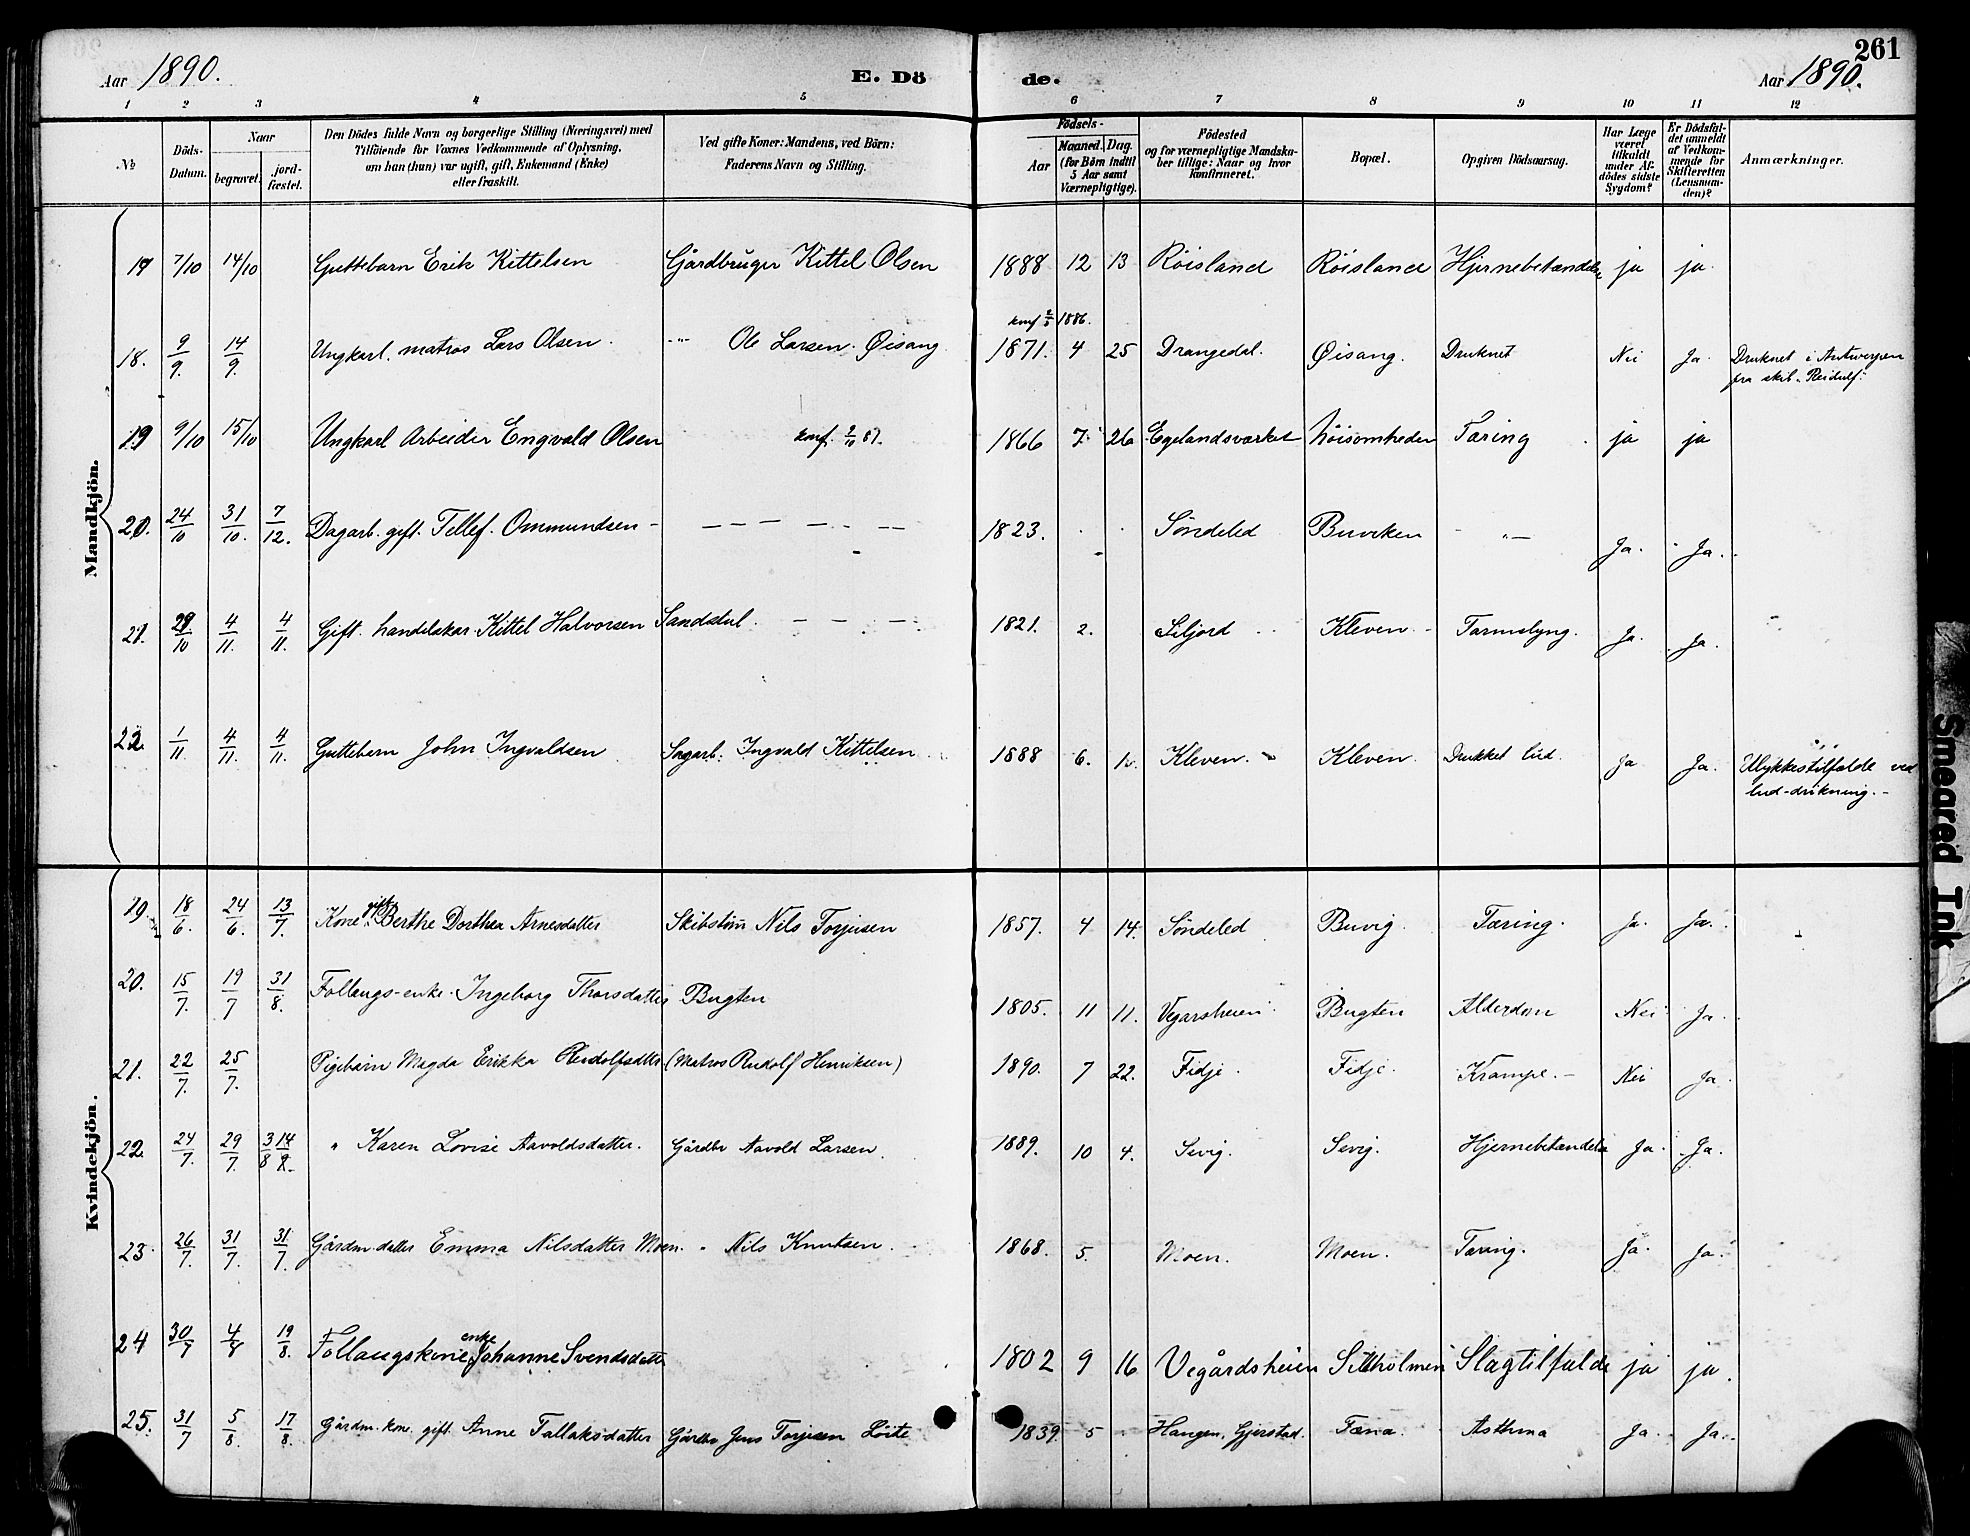 261
Aar 1890.
E. Dö de.
Aar 1890.
1 2 3 4 5 6 7 8 9 10 11 12
№
Döds-Datum.
Naar
begravet.
jord-fæstet.
Den Dödes fulde Navn og borgerlige Stilling (Næringsvei) med
Tilföiende for Voxnes Vedkommende af Oplysning,
om han (hun) var ugift, gift, Enkemand (Enke)
eller fraskilt.
Ved gifte Koner: Mandens, ved Börn:
Faderens Navn og Stilling.
Födsels-
Aar
Maaned. Dag.
(for Börn indtil
5 Aar samt
Værnepligtige).
Födested
og for værnepligtige Mandska-
ber tillige: Naar og hvor
konfirmeret.
Bopæl.
Opgiven Dödsaarsag.
Har Læge
været
tilkaldt
under Af-
dödes sidste
Sygdom?
Er Dödsfal-
det anmeldt
af Vedkom-
mende for
Skifteretten
(Lensman-
den)?
Anmærkninger.
Mandkjön.
7/10 14/10 Guttebarn Erik Kittelsen Gårdbruger Kittel Olsen 1888 12 13 Röisland Röisland Hjernebetændelse ja ja.
konf 1886.
18. 9/9. 14/9. Ungkarl. matros Lars Olsen. -"- Ole Larsen Øisang 1871. 4 25 Drangedal. Øisang. Druknet Nei Ja. Druknet i Antwerpen
fra skib "Reidulf."
19 9/10 15/10 Ungkarl Arbeider Engvald Olsen konf. 1866 7. 26 Egelandsværket Tæring ja ja
20. 24/10 31/10. 7/12. Dagarb. gift. Tellef. Ommundsen - 1823. Söndeled Buviken -"- Ja. Ja.
21. 29/10 4/11. 4/11. Gift. handelskar. Kittel Halvorsen Sandstul. 1821. 2. Siljord Kleven. Tarmslyng. Ja. Ja.
22. 1/11. 4/11. 4/11. Guttebarn John Ingvaldsen Sagarb: Ingvald Kittelsen 1888 6. Kleven. Kleven. Drukket lud. Ja Ja. Ulykkestilfælde ved
lud-drikning. -
Kvindekjön.
19. 18/6. 24/6. 13/7. Kone gift. Berthe Dorthea Arnesdatter Skibstöm Nils Torjusen 1857. 4 14. Söndeled Buvig. Tæring. Ja. Ja.
20. 15/7. 19/7 31/8. Follaugs-enke. Ingeborg Thorsdatter Bugten 1805. 11 11. Vegarsheien. Bugten Alderdom Nei Ja.
21. 22/7. 25/7. Pigebarn Magda Erikka Rudolfsdatter (Matros Rudolf Henriksen) 1890. 7 22. Fidje. Fidje. Krampe. - Nei Ja.
22. 24/7. 29/7. " Karen Lovise Aavoldsdatter. Gårdbr Aavold Larsen. 1889. 10 4. Sevig. Sevig. Hjernebetændelse Ja. Ja.
23. 26/7. 31/7. 31/7. Gårdm. datter Emma Nilsdatter Moen. " Nils Knutsen. 1868. 5. Moen. Moen. Tæring. Ja. Ja.
24 30/7 4/8 19/8. Follaugskone enke Johanne Svendsdatter 1802 9 16 Vegårdsheien Slagtilfælde ja ja.
25. 31/7 5/8. 17/8. Gårdm. kone. gift. Anne Tallaksdatter Gårdbr Jens Torjusen Löite 1839. 5 Haugen, Gjerstad. Asthma Ja. Ja.
Smeared Ink